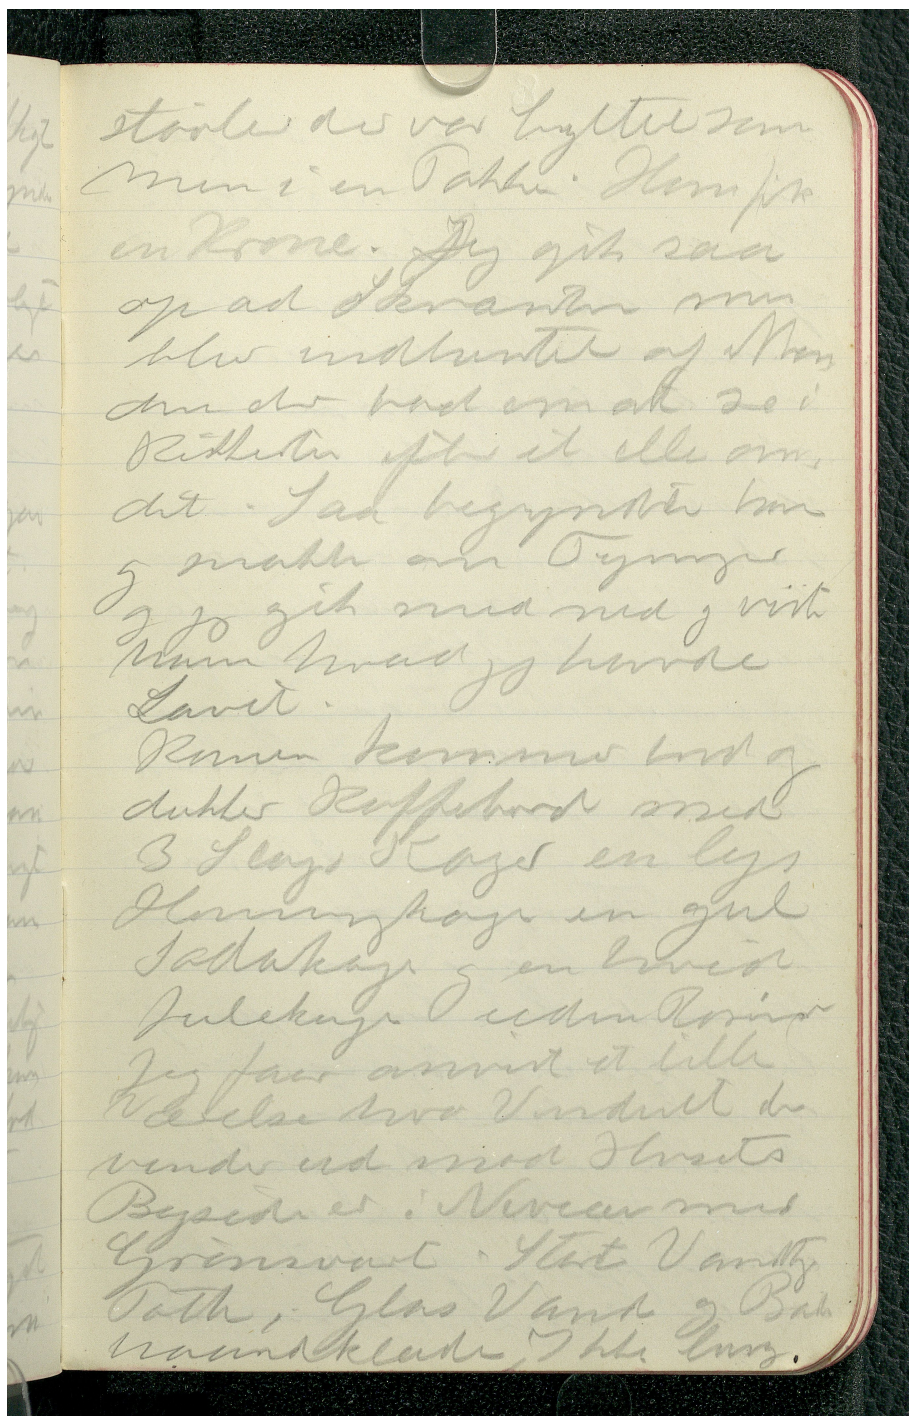 støvler der var byttet som
Men i en Takke. Ham fik
en Krone. Jeg gik saa
op ad Skrænten men
blev indhentet af Man
den der bad om at se i
efter et elle an,
det. Saa begyndte han
og snakke om Tegninger
og jeg gik med ned og viste
ham hvad jeg havde
Lavet.
Konen kommer ind og
dækker Kaffebord med
3 Slags Kager en lys
Honningkage en gul
Sodakage og en hvid
Julekage uden Rosiner
Jeg faar anvist et lille
Værelse hvor Vinduet der
vender ud mod Husets
Bagside er i Niveau med
Grønsvært. Stort Vandfg
Glas Vand og Bade
haandklæde, Ikke